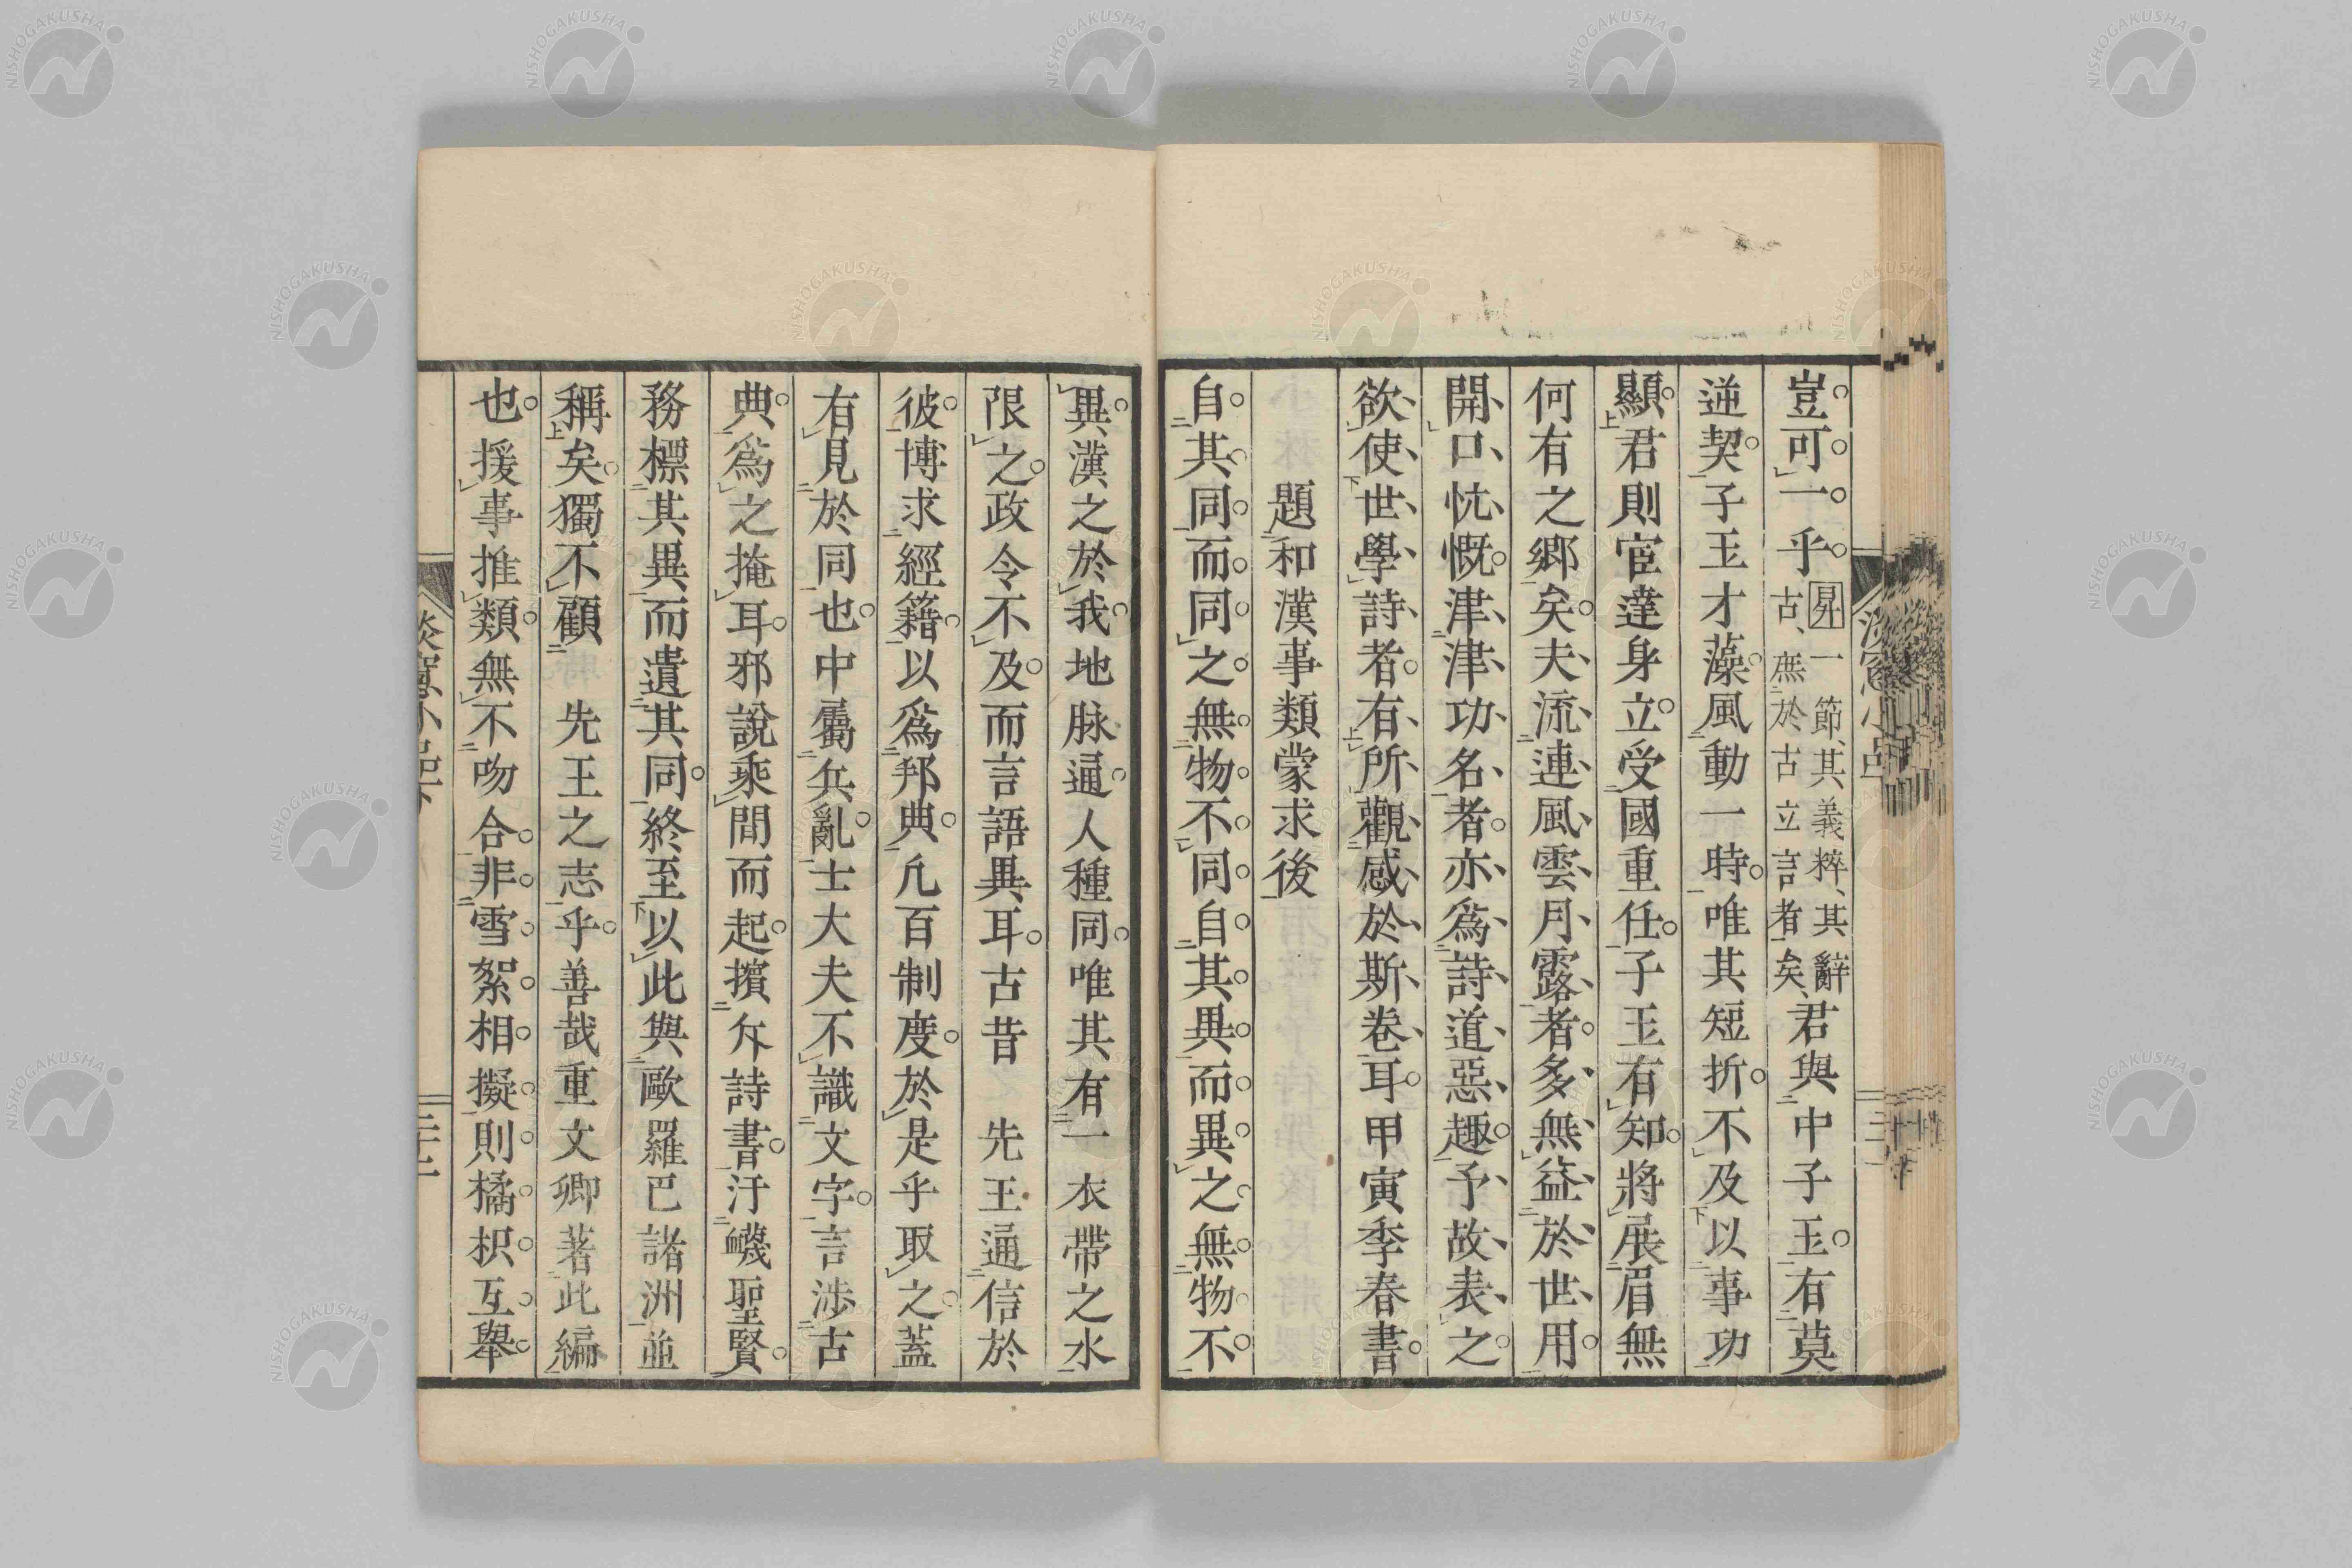 豈可一乎昇一節其義粹其辭古無於古立言者矣君與中子玉有莫
逆契子玉才藻風動一時唯其短折不及以事功
顯君則宦達身立受國重任子玉有知將展眉無
何有之鄉矣夫流連風雲月露者多無益於世用
開口忼慨津津功名者亦為詩道惡趣予故表之
欲使世學詩者有所觀感於斯卷耳甲寅季春書
題和漢事類蒙求後
自其同而同之無物不同自其異而異之無物不
異漢之於我地脉通人種同唯其有一衣帶之水
限之政令不及而言語異耳古昔 先王通信於
彼博求經籍以爲邦典凡百制度於是乎取之蓋
有見於同也中屬兵亂士大夫不識文字言涉古
典爲之掩耳邪說乘間而起擯斥詩書汙衊聖賢
務標其異而遺其同終至以此與歐羅巴諸洲並
稱矣獨不顧 先王之志乎善哉重文卿著此編
也援事推類無不吻合非雪絮相擬則橘枳互舉